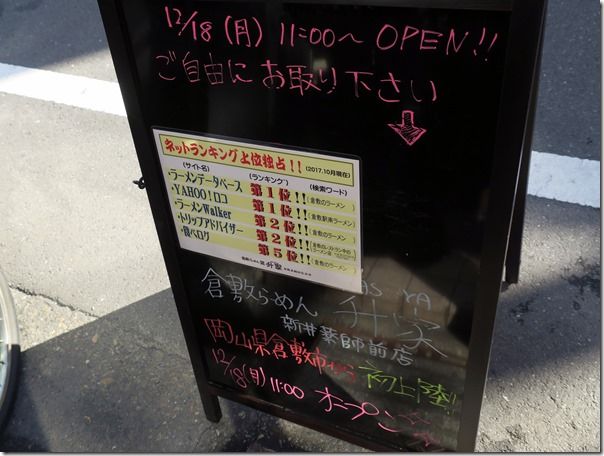 12/18(月) 11:00〜 OPEN!!
ご自由にお取り下さい
ネットランキング上位独占!! (2017.10月現在)
(サイト名) (ランキング) (検索ワード)
・ラーメンデータベース 第1位!! (倉敷のラーメン)
・YAHOO!ロコ 第1位!! (倉敷駅東ラーメン)
・ラーメンWalker 第2位!! (倉敷のラーメン)
・トリップアドバイザー 第2位!!
・食べログ 第5位!! (倉敷のラーメン)
升家
倉敷らめん 升家
新井薬師前店
岡山県倉敷市から初上陸!!
12/18(月) 11:00 オープン